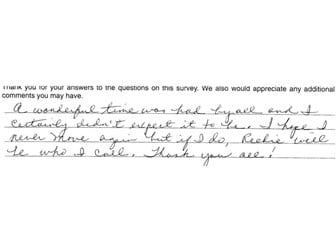 Thank you for your answers to the questions on this survey. We also would appreciate any additional
comments you may have.
A wonderful time was had by all and I
certainly didn't expect it to be. I hope I
never move again but if I do, Reebie will
be who I call. Thank you all!